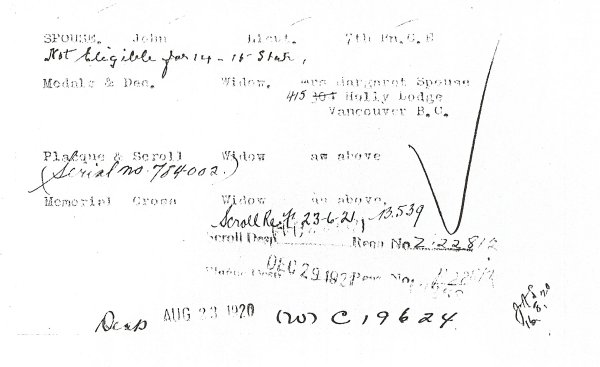 SPOUSE. John Lieut. 7th Bn. C. E
Not Eligible for 14-15 Star,
Medals & Dec. Widow. Mrs Margaret Spouse
415 304 Holly Lodge
Vancouver B.C.
Plaque & Scroll Widow as above
(Serial no. 784002.)
Memorial Cross Widow as above.
Scroll 23-6-21, 13539
Scroll Desp Reqn No Z.22812
Plaque Desp DEC 29 192 Reqn No.
Desp AUG 23 1920 (W) C 19624